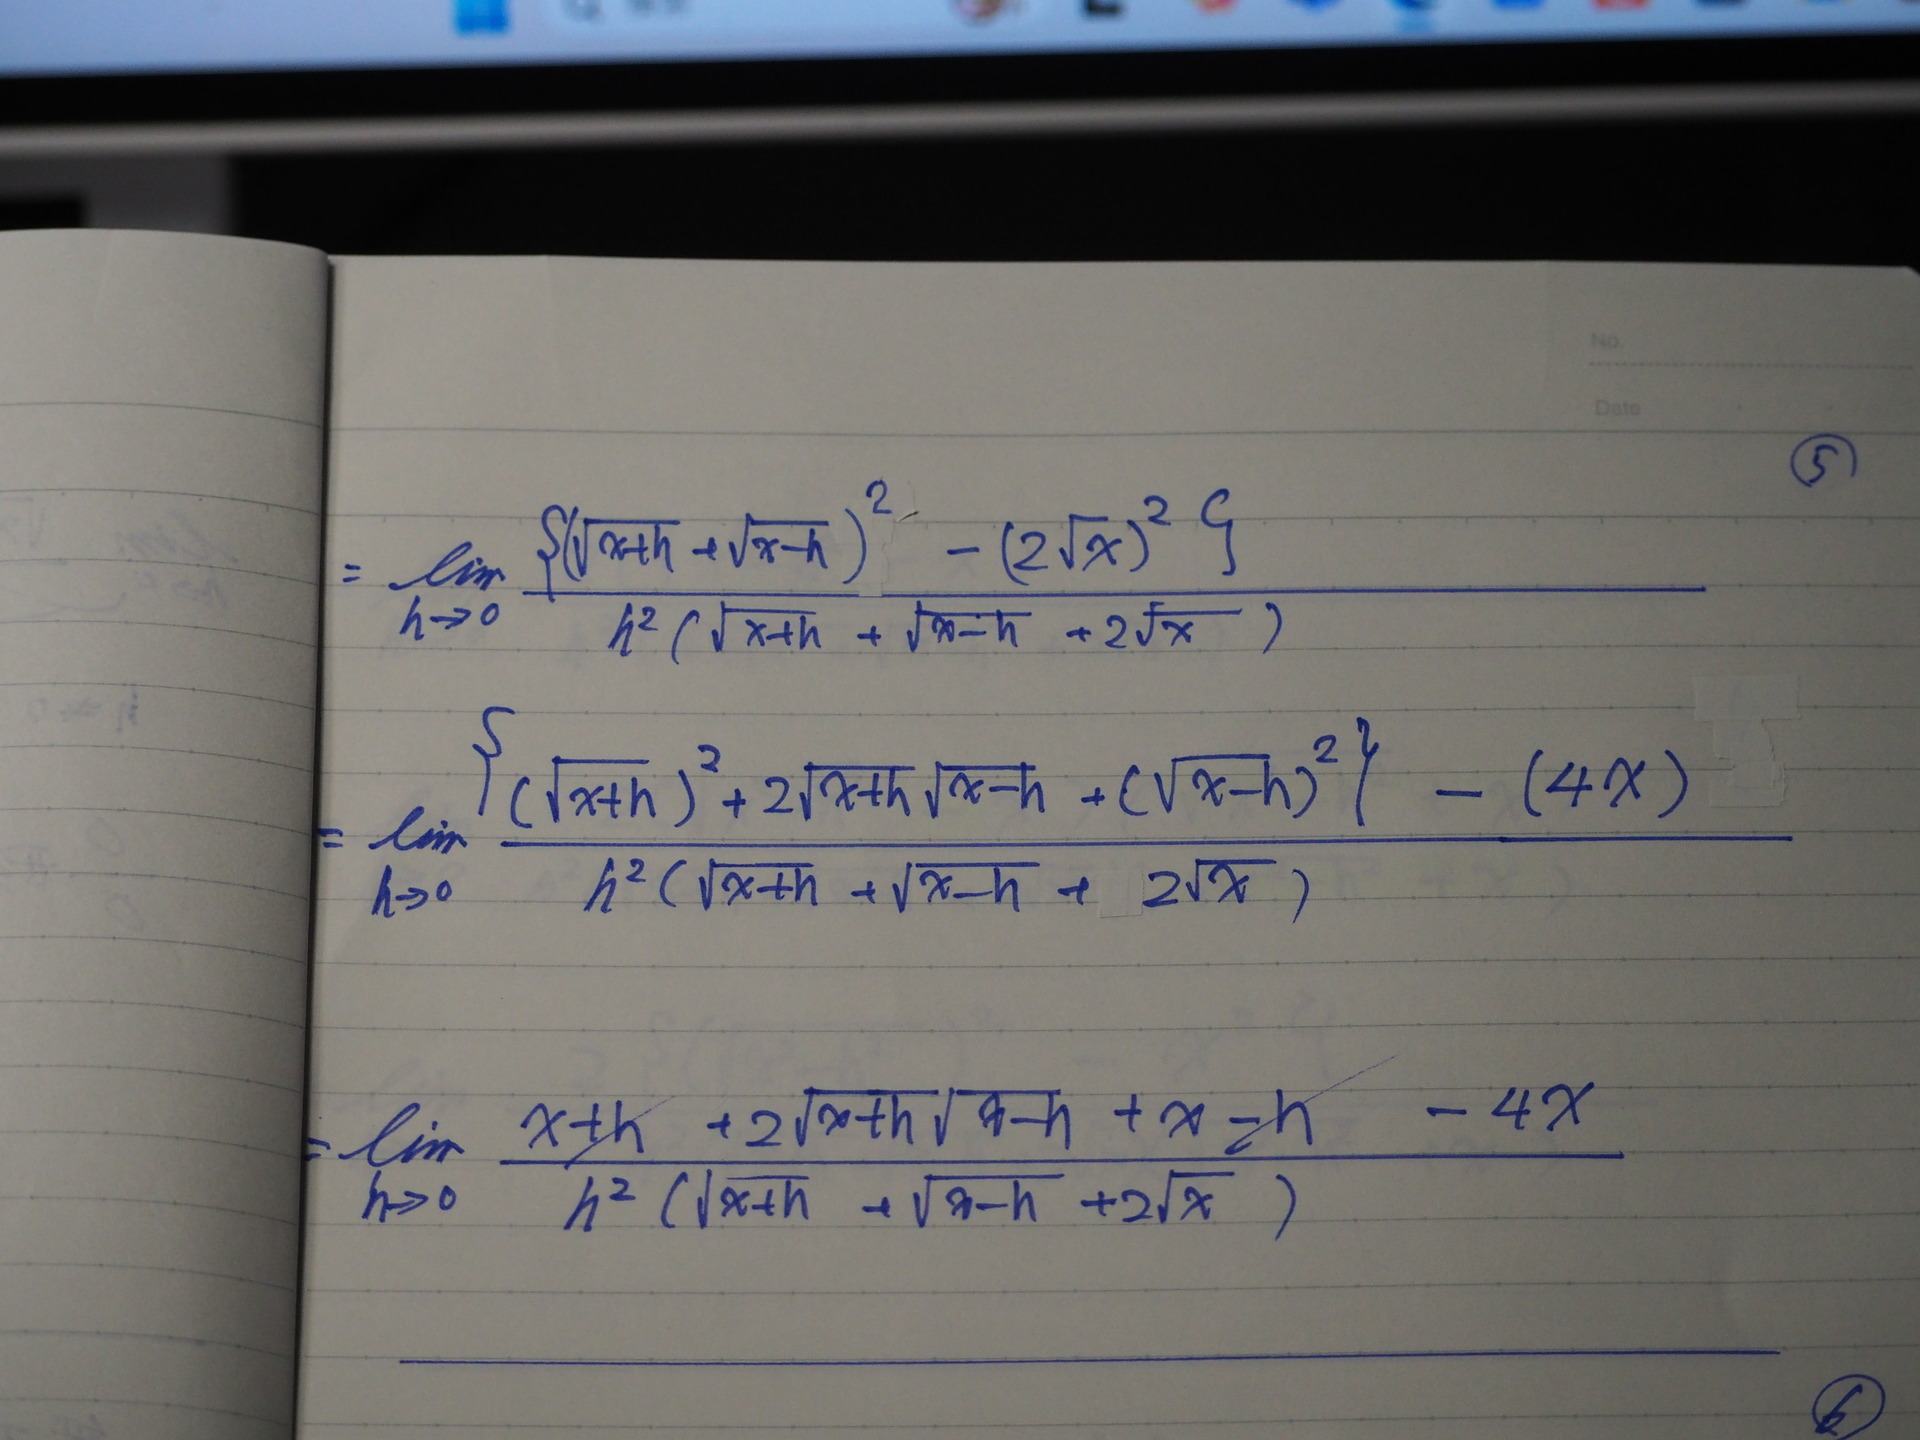 No.
Date
⑤
= lim h→0 {(√(x+h) + √(x-h))² - (2√x)²} / h²(√(x+h) + √(x-h) + 2√x)
= lim h→0 {(√(x+h))² + 2√(x+h)√(x-h) + (√(x-h))²} - (4x) / h²(√(x+h) + √(x-h) + 2√x)
= lim h→0 x+h + 2√(x+h)√(x-h) + x-h - 4x / h²(√(x+h) + √(x-h) + 2√x)
⑥